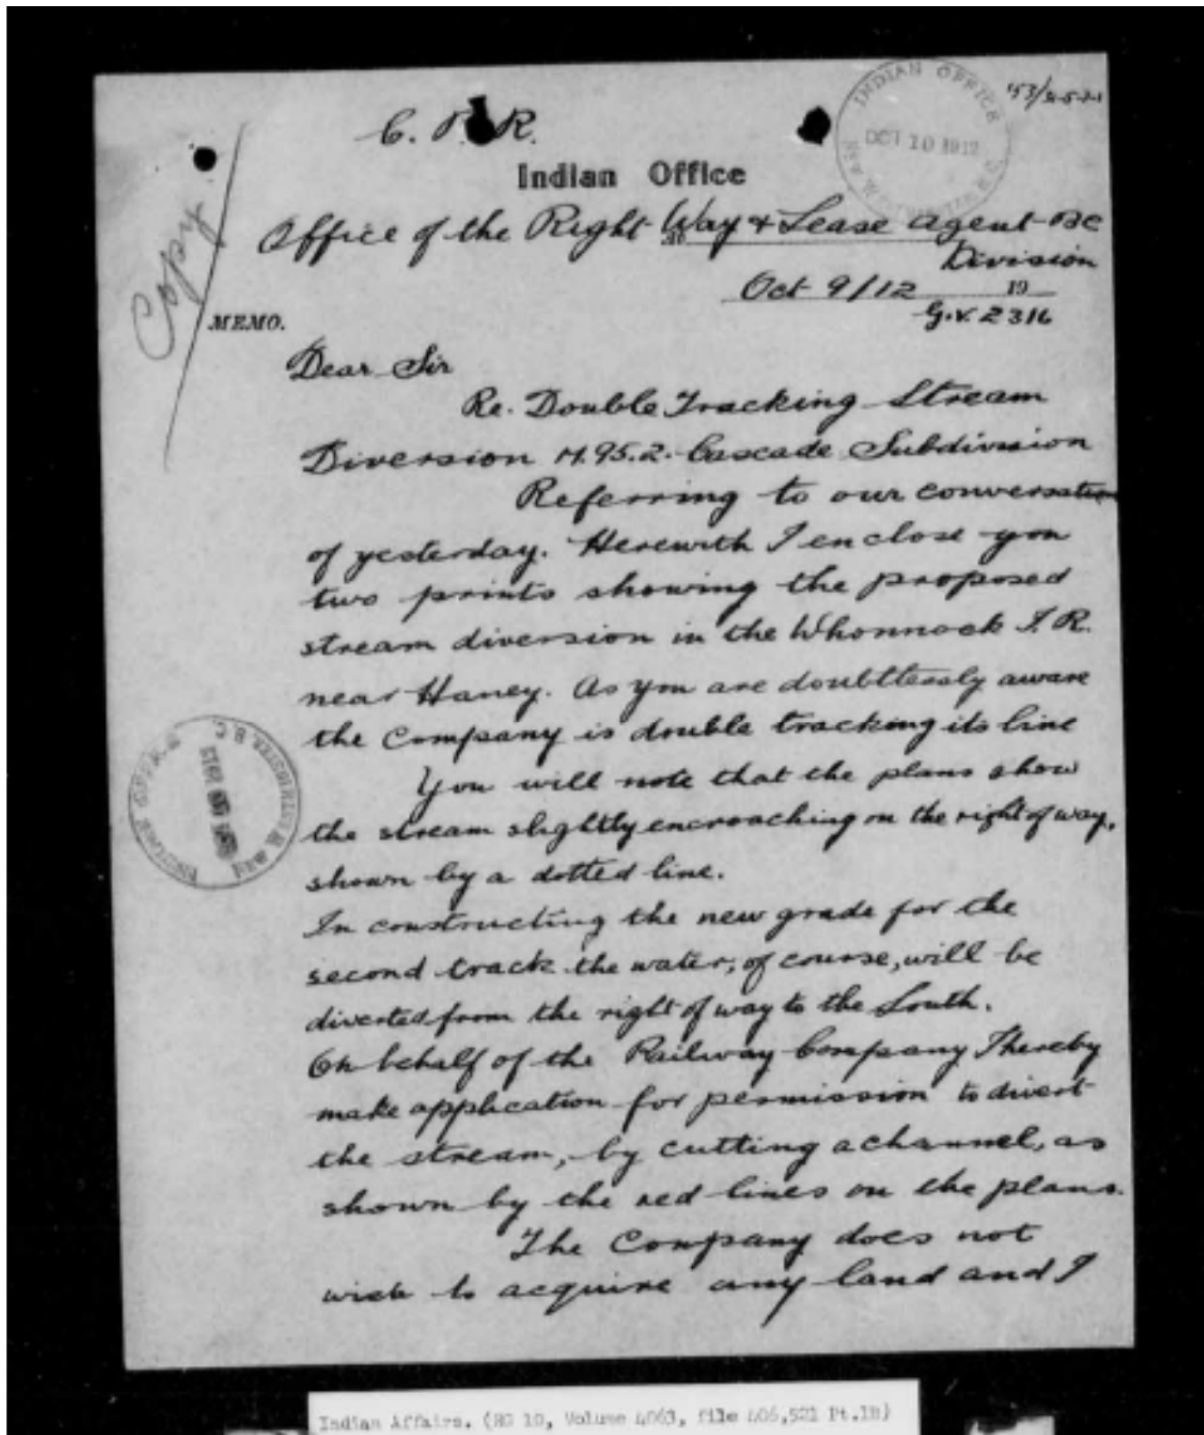 C. P. R.
INDIAN OFFICE
OCT 10 1912
Indian Office
Copy
Office of the Right Way & Lease Agent BC
Division
Oct 9/12 19
G.V. 2316
MEMO.
Dear Sir
Re. Double Tracking Stream
Diversion M.95.2. Cascade Subdivision
Referring to our conversation
of yesterday. Herewith I enclose you
two prints showing the proposed
stream diversion in the Whonnock I.R.
near Haney. As you are doubttlessly aware
the Company is double tracking its line
You will note that the plans show
the stream slightly encroaching on the right of way,
shown by a dotted line.
In constructing the new grade for the
second track the water, of course, will be
diverted from the right of way to the South.
On behalf of the Railway Company I hereby
make application for permission to divert
the stream, by cutting a channel, as
shown by the red lines on the plans.
The Company does not
wish to acquire any land and I
Indian Affairs. (RG 10, Volume 4063, file 406,521 Pt.1B)